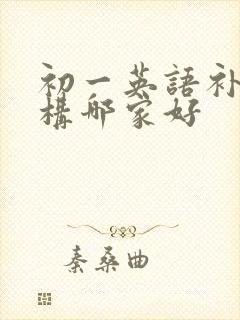 初一英語补
構哪家好
秦桑曲